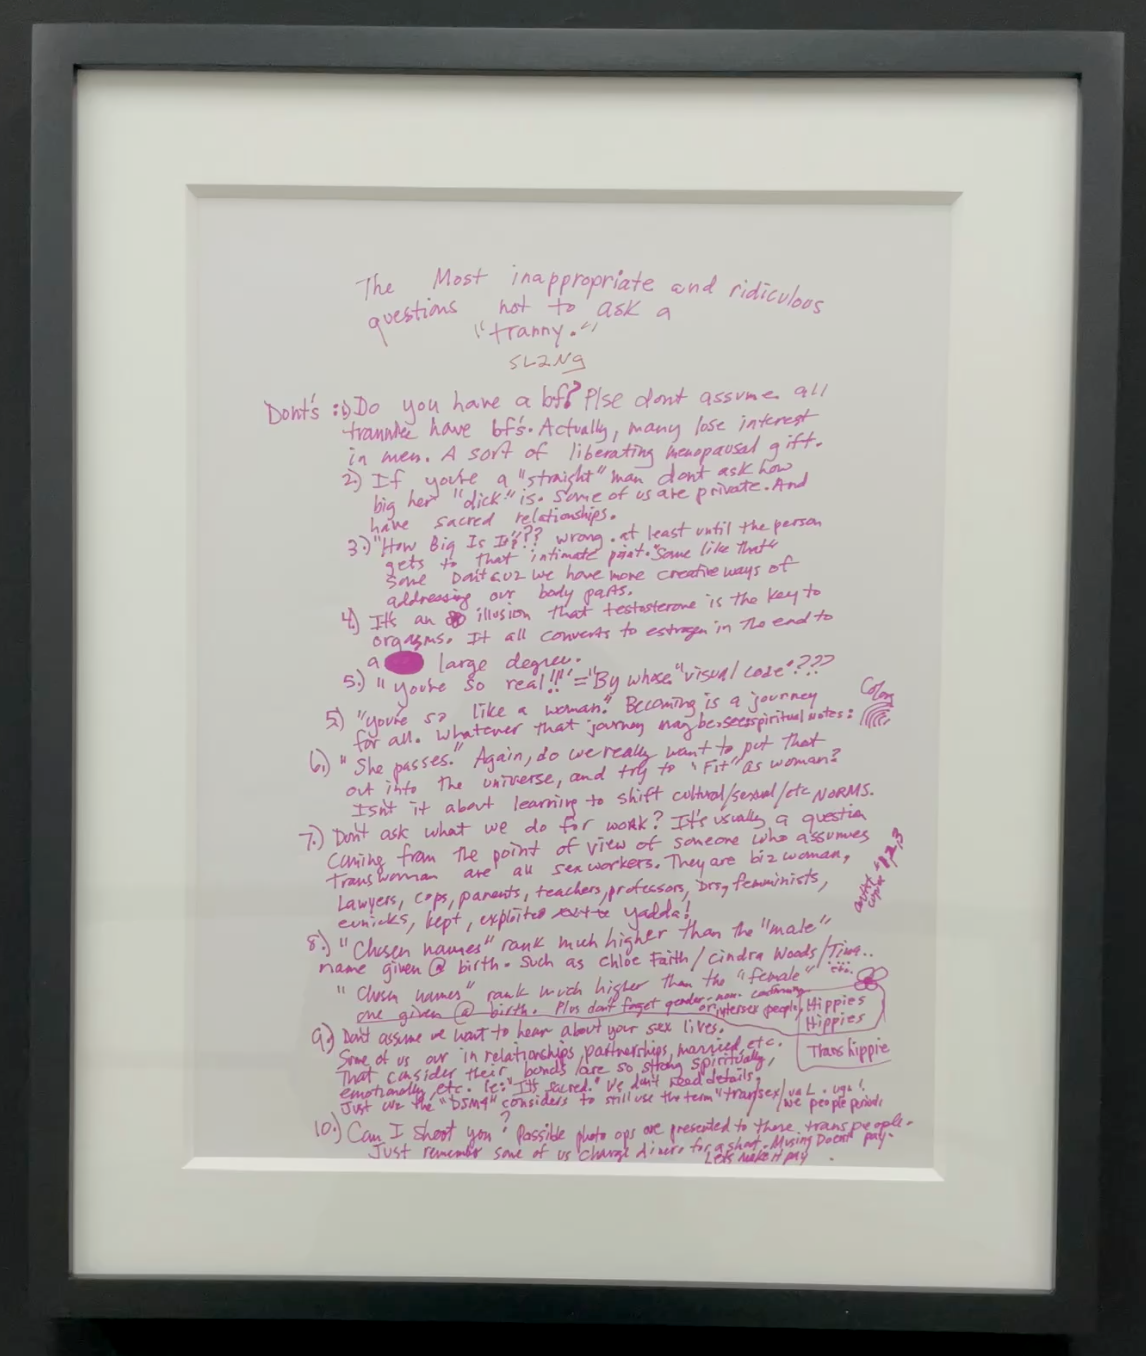 The Most inappropriate and ridiculous
questions not to ask a
"tranny."
Dont's : 1) Do you have a bf? Plse dont assume all
have bf's. Actually, many lose interest
in men. A sort of liberating menopausal gift.
2) If you're a "straight" man dont ask how
big her "dick" is. Some of us are private. And
have sacred relationships.
3.) "How Big Is It??? wrong. at least until the person
gets to that intimate point. "Some like that"
some Don't cuz we have more creative ways of
addressing our body parts.
4.) It's an illusion that testosterone is the key to
orgasms. It all converts to estrogen in the end to
a large degree.
5.) "you're so real!!" = "By whose "visual code"???
5) "you're so like a woman." Becoming is a journey
for all. Whatever that journey may be.
spiritual notes:
6.) "She passes." Again, do we really want to put that
out into the universe, and try to "Fit" as woman?
Isn't it about learning to shift cultural/sexual/etc NORMS.
7.) Don't ask what we do for work? It's usually a question
coming from the point of view of someone who assumes
transwoman are all sex workers. They are biz woman,
Lawyers, cops, parents, teachers, professors, Drs, femminists,
eunicks, kept, exploited yadda!
8.) "Chosen names" rank much higher than the "male"
name given @ birth. Such as Chloe Faith/Cindra Woods/Tina..
"Chosen names" rank much higher than the "female" etc.
one given @ birth. Plus don't forget gender-non-conforming
or intersex people,
Hippies
Hippies
Trans hippie
9.) Don't assume we want to hear about your sex lives.
Some of us our in relationships, partnerships, married, etc.
That consider their bonds are so strong spiritually,
emotionally, etc. ie: "It's sacred." We don't need details,
Just cuz the "DSM4" considers to still use the term "transex/ual. ugh!
we people periods
10.) Can I shoot you? Possible photo ops are presented to these transpeople.
Just remember some of us charge dinero for a shoot. Musing Doesn't pay.
Lets make it pay